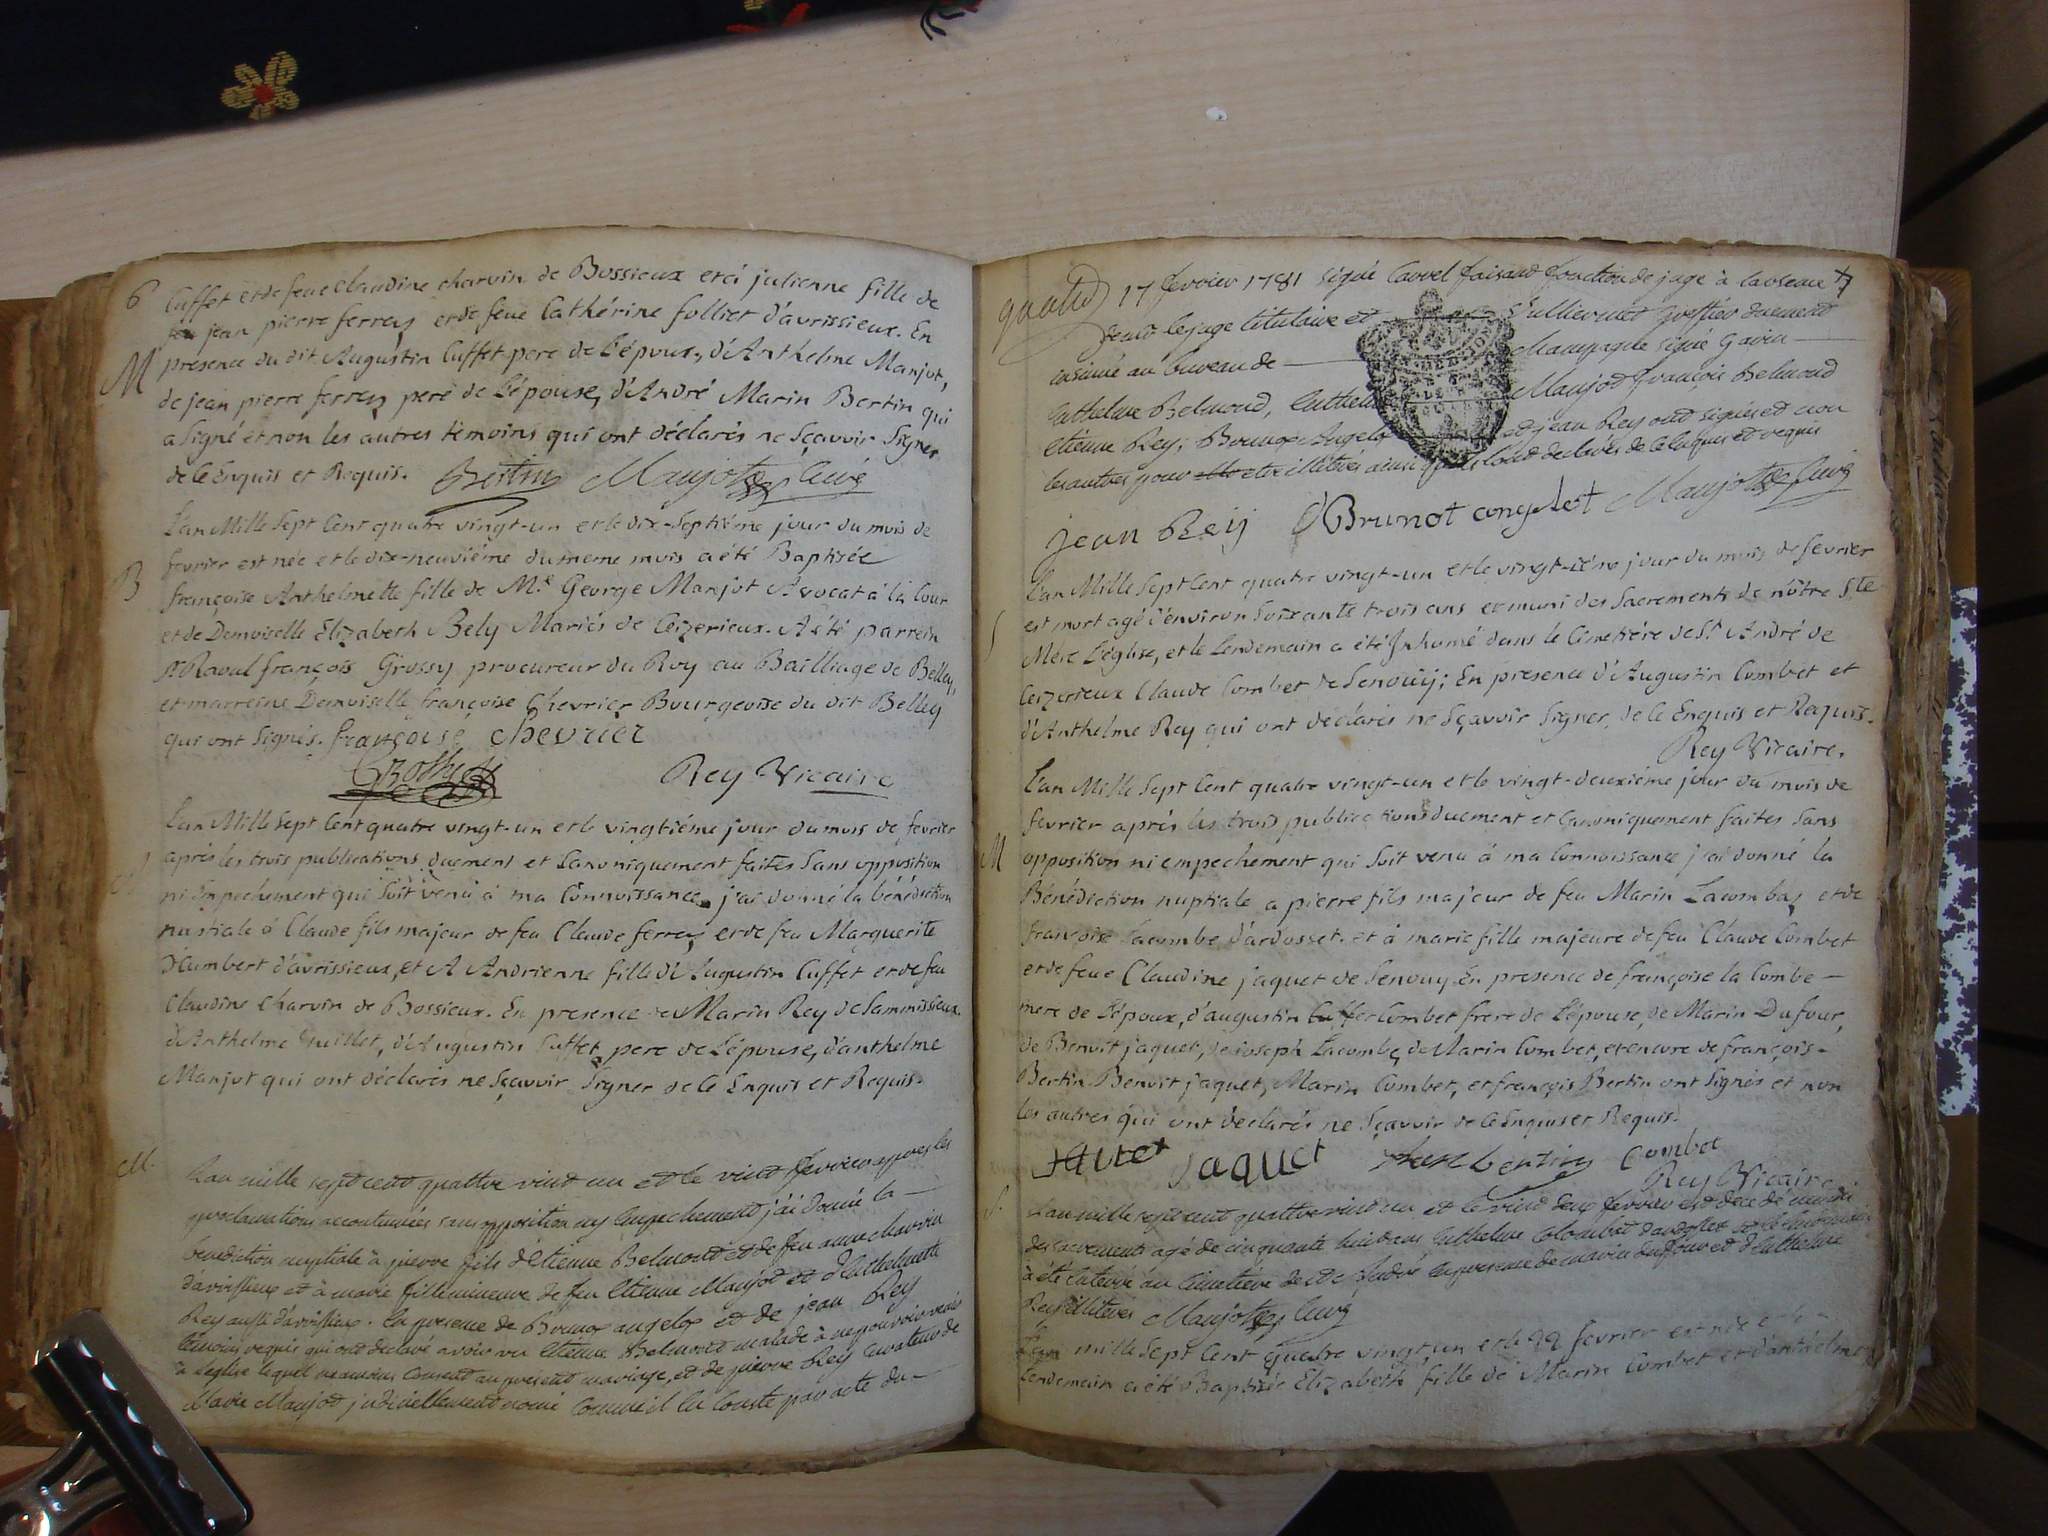 6
Cuffet et de feüe Claudine charvin de Bossieux et à julienne fille de
jean pierre ferrey et de feüe Cathérine folliet d'avrissieux. En
M
presence du dit Augustin Cuffet pere de l'époux, d'Anthelme Manjot,
de jean pierre ferrey pere de l'épouse, d'André Marin Bertin qui
a signé et non les autres témoins qui ont déclarés ne sçavoir signer
de ce Enquis et Requis. Bertin Manjot Curé
L'an Mille Sept Cent quatre vingt-un et le dix-septiéme jour du mois de
B
fevrier est née et le dix-neuviéme du meme mois a été Baptisée
françoise Anthelmette fille de Mr. George Manjot Avocat à la Cour
et de Demoiselle Elizabeth Bely Mariés de Ceizerieux. A été parrein
Sr Raoul françois Grossy procureur du Roy au Bailliage de Belley,
et marreine Demoiselle françoise Chevrier Bourgeoise du dit Belley
qui ont signés. françoise chevrier
Rey Vicaire
L'an Mille Sept Cent quatre vingt-un et le vingtiéme jour du mois de fevrier
après les trois publications duement et Canoniquement faites sans opposition
ni Empechement qui soit venu à ma Connoissance j'ai donné la bénédiction
nuptiale à Claude fils majeur de feu Claude ferrey et de feu Marguerite
d'humbert d'avrissieux, et A Andrienne fille d'Augustin Cuffet et de feu
Claudine Charvin de Bossieux. En presence de Marin Rey de Sammissieux
d'Anthelme Tuillet, d'Augustin Cuffet pere de l'épouse, d'anthelme
Manjot qui ont déclarés ne sçavoir signer de ce Enquis et Requis.
M.
L'an mille sept cent quattre vint un et le vint fevrier apres les
proclamations accoutumées sans opposition ny empechement j'ai donné la
benediction nuptiale à pierre fils d'Etienne Belmond et de feu anne charvin
d'avrissieux et à marie fille mineure de feu Etienne Manjot et d'Anthelmette
Rey aussi d'avrissieux. En presence de Brunox angelox et de jean Rey
temoins requis qui ont declaré avoir vu Etienne Belmond malade à ne pouvoir venir
à l'eglise lequel neamoins consent au present mariage, et de pierre Rey curateur de
Marie Manjot judiciellement nomé comme il en conste par acte du
17 fevrier 1781 signé Carrel faisant fonction de juge à la vseance
de mr le juge titulaire et Vullierme greffier duement
insinué au bureau de Champagne signé Gavin
Anthelme Belmond, Manjot françois Belmond
etienne Rey, Brunox Angelox et jean Rey ont signés et non
les autres pour etre illitérés ainsi qu'ils l'ont declarés de ce enquis et requis
jean Reÿ Brunot angelot Manjot Curé
L'an Mille Sept Cent quatre vingt-un et le vingt-iéme jour du mois de fevrier
S
est mort agé d'environ soixante trois ans et muni des Sacrements de nôtre Ste
Mere l'église, et le Lendemain a été Inhumé dans le Cimetiére de St. André de
Ceizerieux Claude Combet de Senoüy; En presence d'Augustin Combet et
d'Anthelme Rey qui ont déclarés ne sçavoir signer, de ce Enquis et Requis.
Rey Vicaire.
L'an Mille Sept Cent quatre vingt-un et le vingt-deuxiéme jour du mois de
fevrier aprés les trois publications duement et Canoniquement faites sans
M
opposition ni empechement qui soit venu à ma Connoissance j'ai donné la
Bénédiction nuptiale a pierre fils majeur de feu Marin Lacombe, et de
françoise Lacombe d'ardosset. et à marie fille majeure de feu Claude Combet
et de feüe Claudine jaquet de Senouy. En presence de françoise la Combe
mere de l'époux, d'augustin Combet frere de l'épouse, de Marin Dufour,
de Benoit jaquet, de joseph Lacombe, de Marin Combet, et encore de françois
Bertin. Benoit jaquet, Marin Combet, et françois Bertin ont signés et non
les autres qui ont déclarés ne sçavoir de ce Enquis et Requis.
jaquet bertin Combet
Rey Vicaire
S.
L'an mille sept cent quattre vint un et le vint deux fevrier est decedé muni
des sacrements agé de cinquante huit ans Anthelme Colombet d'ardosset et le lendemain
à été enterré au Cimetiére de St André en presence de marin dufour et d'Anthelme
Rey illiterés Manjot Curé
L'an mille Sept Cent quatre vingt un et le 22 fevrier est née et le
Lendemain a été Baptisée Elizabeth fille de Marin Combet et d'anthelme